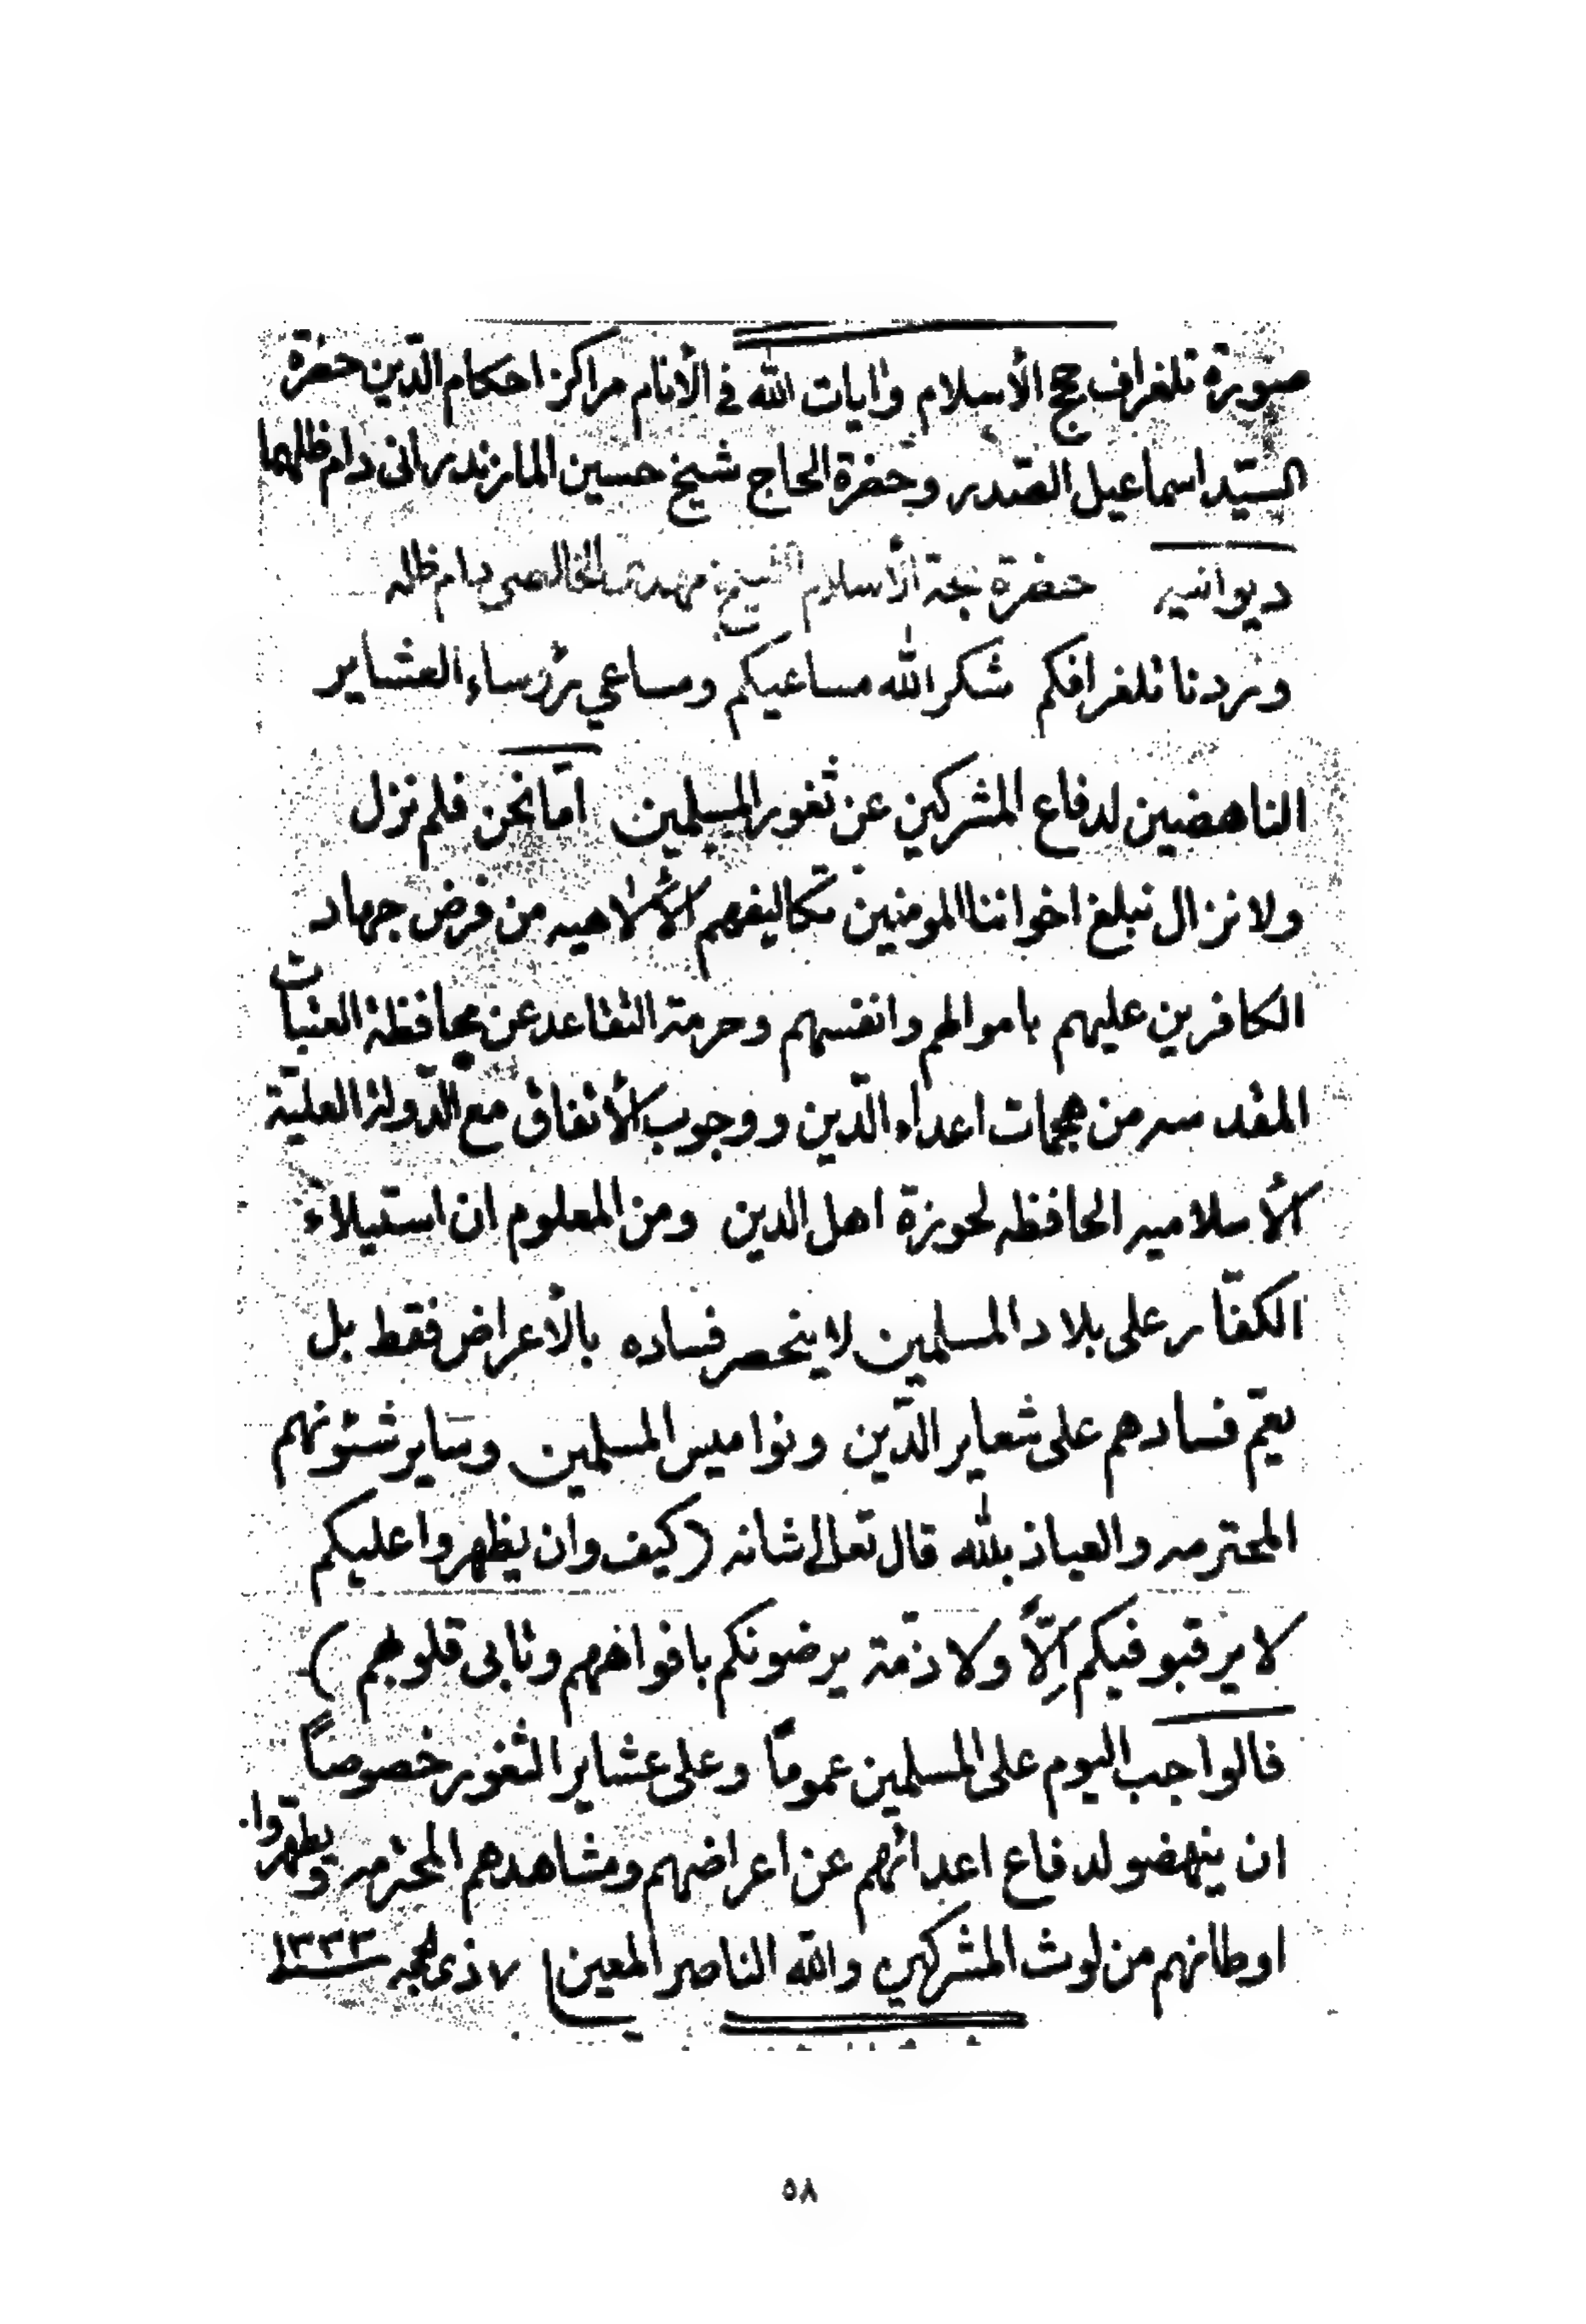 صورة تلغراف حجج الأسلام وايات الله فى الأنام مراكز احكام الدّين حضرة
السيّد اسماعيل الصّدر وحضرة الحاج شيخ حسين المازندرانى دام ظلهما
ديوانيه حضرة حجة الأسلام الشيخ مهدى الخالصى دام ظله
وردنا تلغرافكم شكر الله مساعيكم ومساعي رؤساء العشاير
الناهضين لدفاع المشركين عن ثغور المسلمين امّا نحن فلم نزل
ولا نزال نبلغ اخواننا المومنين تكاليفهم الألاهيه من فرض جهاد
الكافرين عليهم باموالهم وانفسهم وحرمة التقاعد عن محافظة العتبات
المقدسه من هجمات اعداء الدّين ووجوب الأتفاق مع الدّولة العليّة
الأسلاميه الحافظه لحوزة اهل الدين ومن المعلوم ان استيلاء
الكفّار على بلاد المسلمين لا ينحصر فساده بالأعراض فقط بل
يعمّ فسادهم على شعاير الدّين ونواميس المسلمين وساير شئونهم
المحترمه والعياذ بلله قال تعالى شانه (كيف وان يظهروا عليكم
لا يرقبو فيكم اِلّاً ولا ذمّة يرضونكم بافواههم وتابى قلوبهم)
فالواجب اليوم على المسلمين عمومًا وعلى عشاير الثغور خصوصاً
ان ينهضو لدفاع اعدائهم عن اعراضهم ومشاهدهم المحترمه ويطهّروا
اوطانهم من لوث المشركين والله الناصر المعين ٧ ذى الحجه ١٣٣٣
٥٨